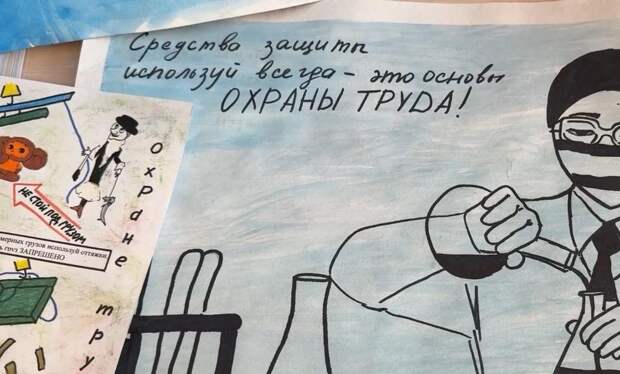 Средства защиты
используй всегда - это основы
ОХРАНЫ ТРУДА!
Охране
тру
НЕ СТОЙ ПОД ГРУЗОМ
мерных грузов используй оттяжки,
груз ЗАПРЕЩЕНО